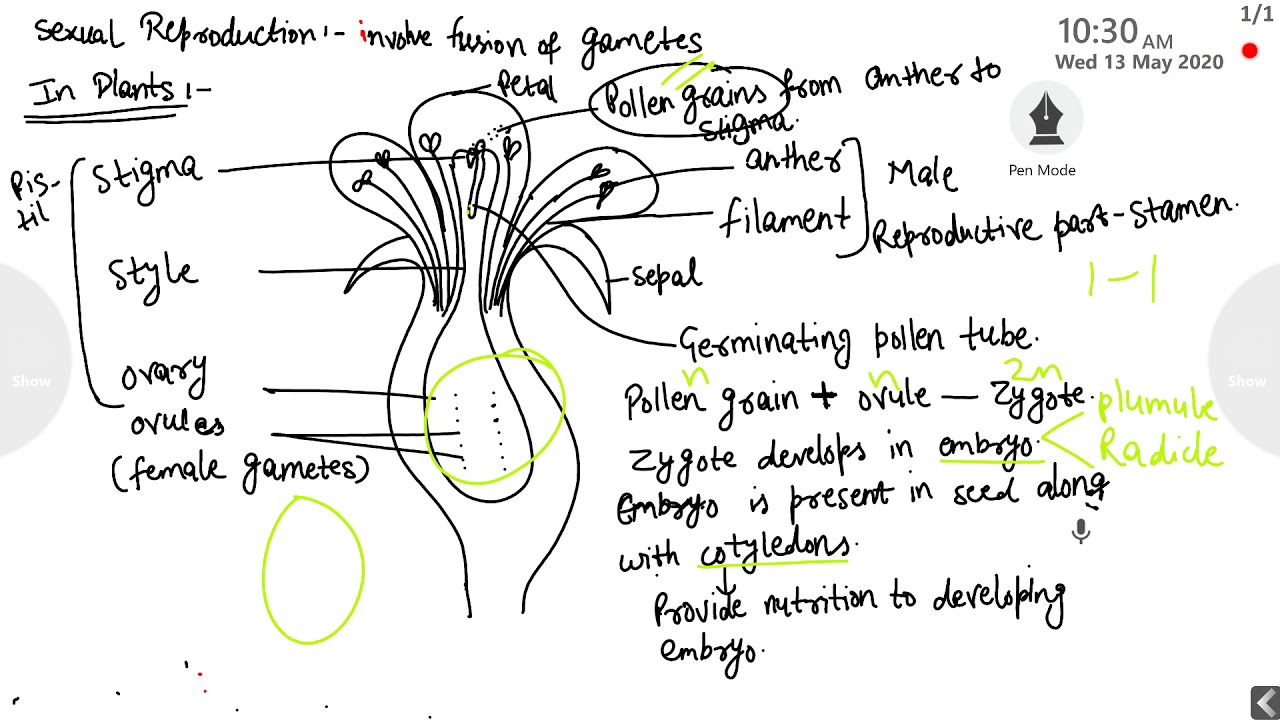 Sexual Reproduction:- involve fusion of gametes
1/1
10:30 AM
Wed 13 May 2020
In Plants :-
Petal
Pollen grains from anther to
stigma.
Pen Mode
Pis-
til
Stigma
anther
filament
Male
Reproductive part-Stamen.
Style
sepal
1-1
Germinating pollen tube.
Show
Show
ovary
ovules
(female gametes)
n n 2n
Pollen grain + ovule — Zygote.
plumule
Radicle
Zygote develops in embryo.
Embryo is present in seed along
with cotyledons.
Provide nutrition to developing
embryo.